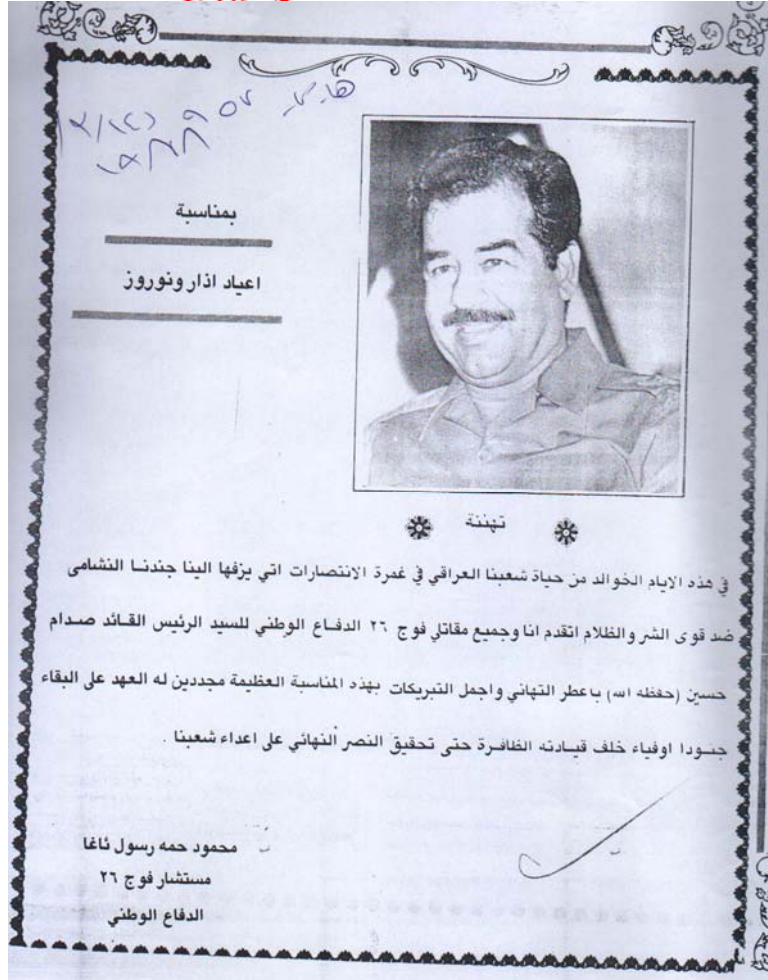 بمناسبة
اعياد اذار ونوروز
تهنئة
في هذه الايام الخوالد من حياة شعبنا العراقي في غمرة الانتصارات اتي يزفها الينا جندنا النشامى
ضد قوى الشر والظلام اتقدم انا وجميع مقاتلي فوج ٢٦ الدفاع الوطني للسيد الرئيس القائد صدام
حسين (حفظه الله) باعطر التهاني واجمل التبريكات بهذه المناسبة العظيمة مجددين له العهد على البقاء
جنودا اوفياء خلف قيادته الظافرة حتى تحقيق النصر النهائي على اعداء شعبنا .
محمود حمه رسول ئاغا
مستشار فوج ٢٦
الدفاع الوطني